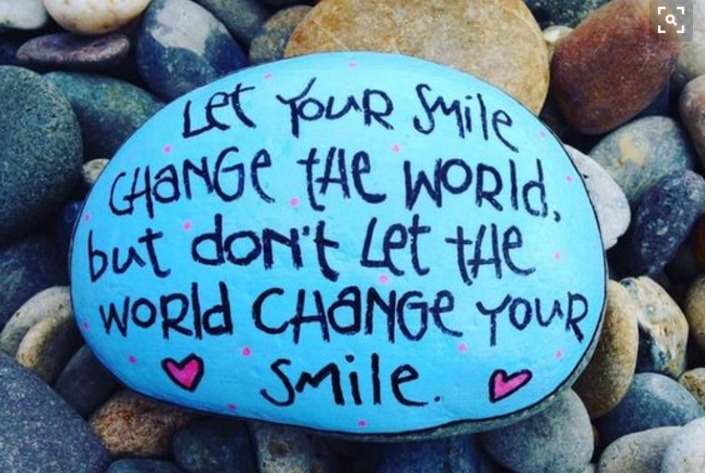 Let YouR Smile
CHaNGe tHe WORld,
but don't Let tHe
WORld CHaNGe YouR
Smile.